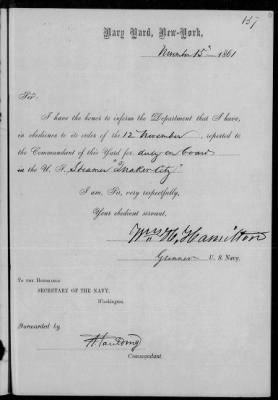 137
Navy Yard, New-York,
November 15th 1861
Sir.
I have the honor to inform the Department that I have,
in obedience to its order of the 12 November, reported to
the Commandant of this Yard for duty on board
in the U. S. Steamer "Quaker City"
I am, Sir, very respectfully,
Your obedient servant,
Wm H. Hamilton
Gunner U. S. Navy.
To the Honorable
SECRETARY OF THE NAVY,
Washington.
Forwarded by
Commandant.